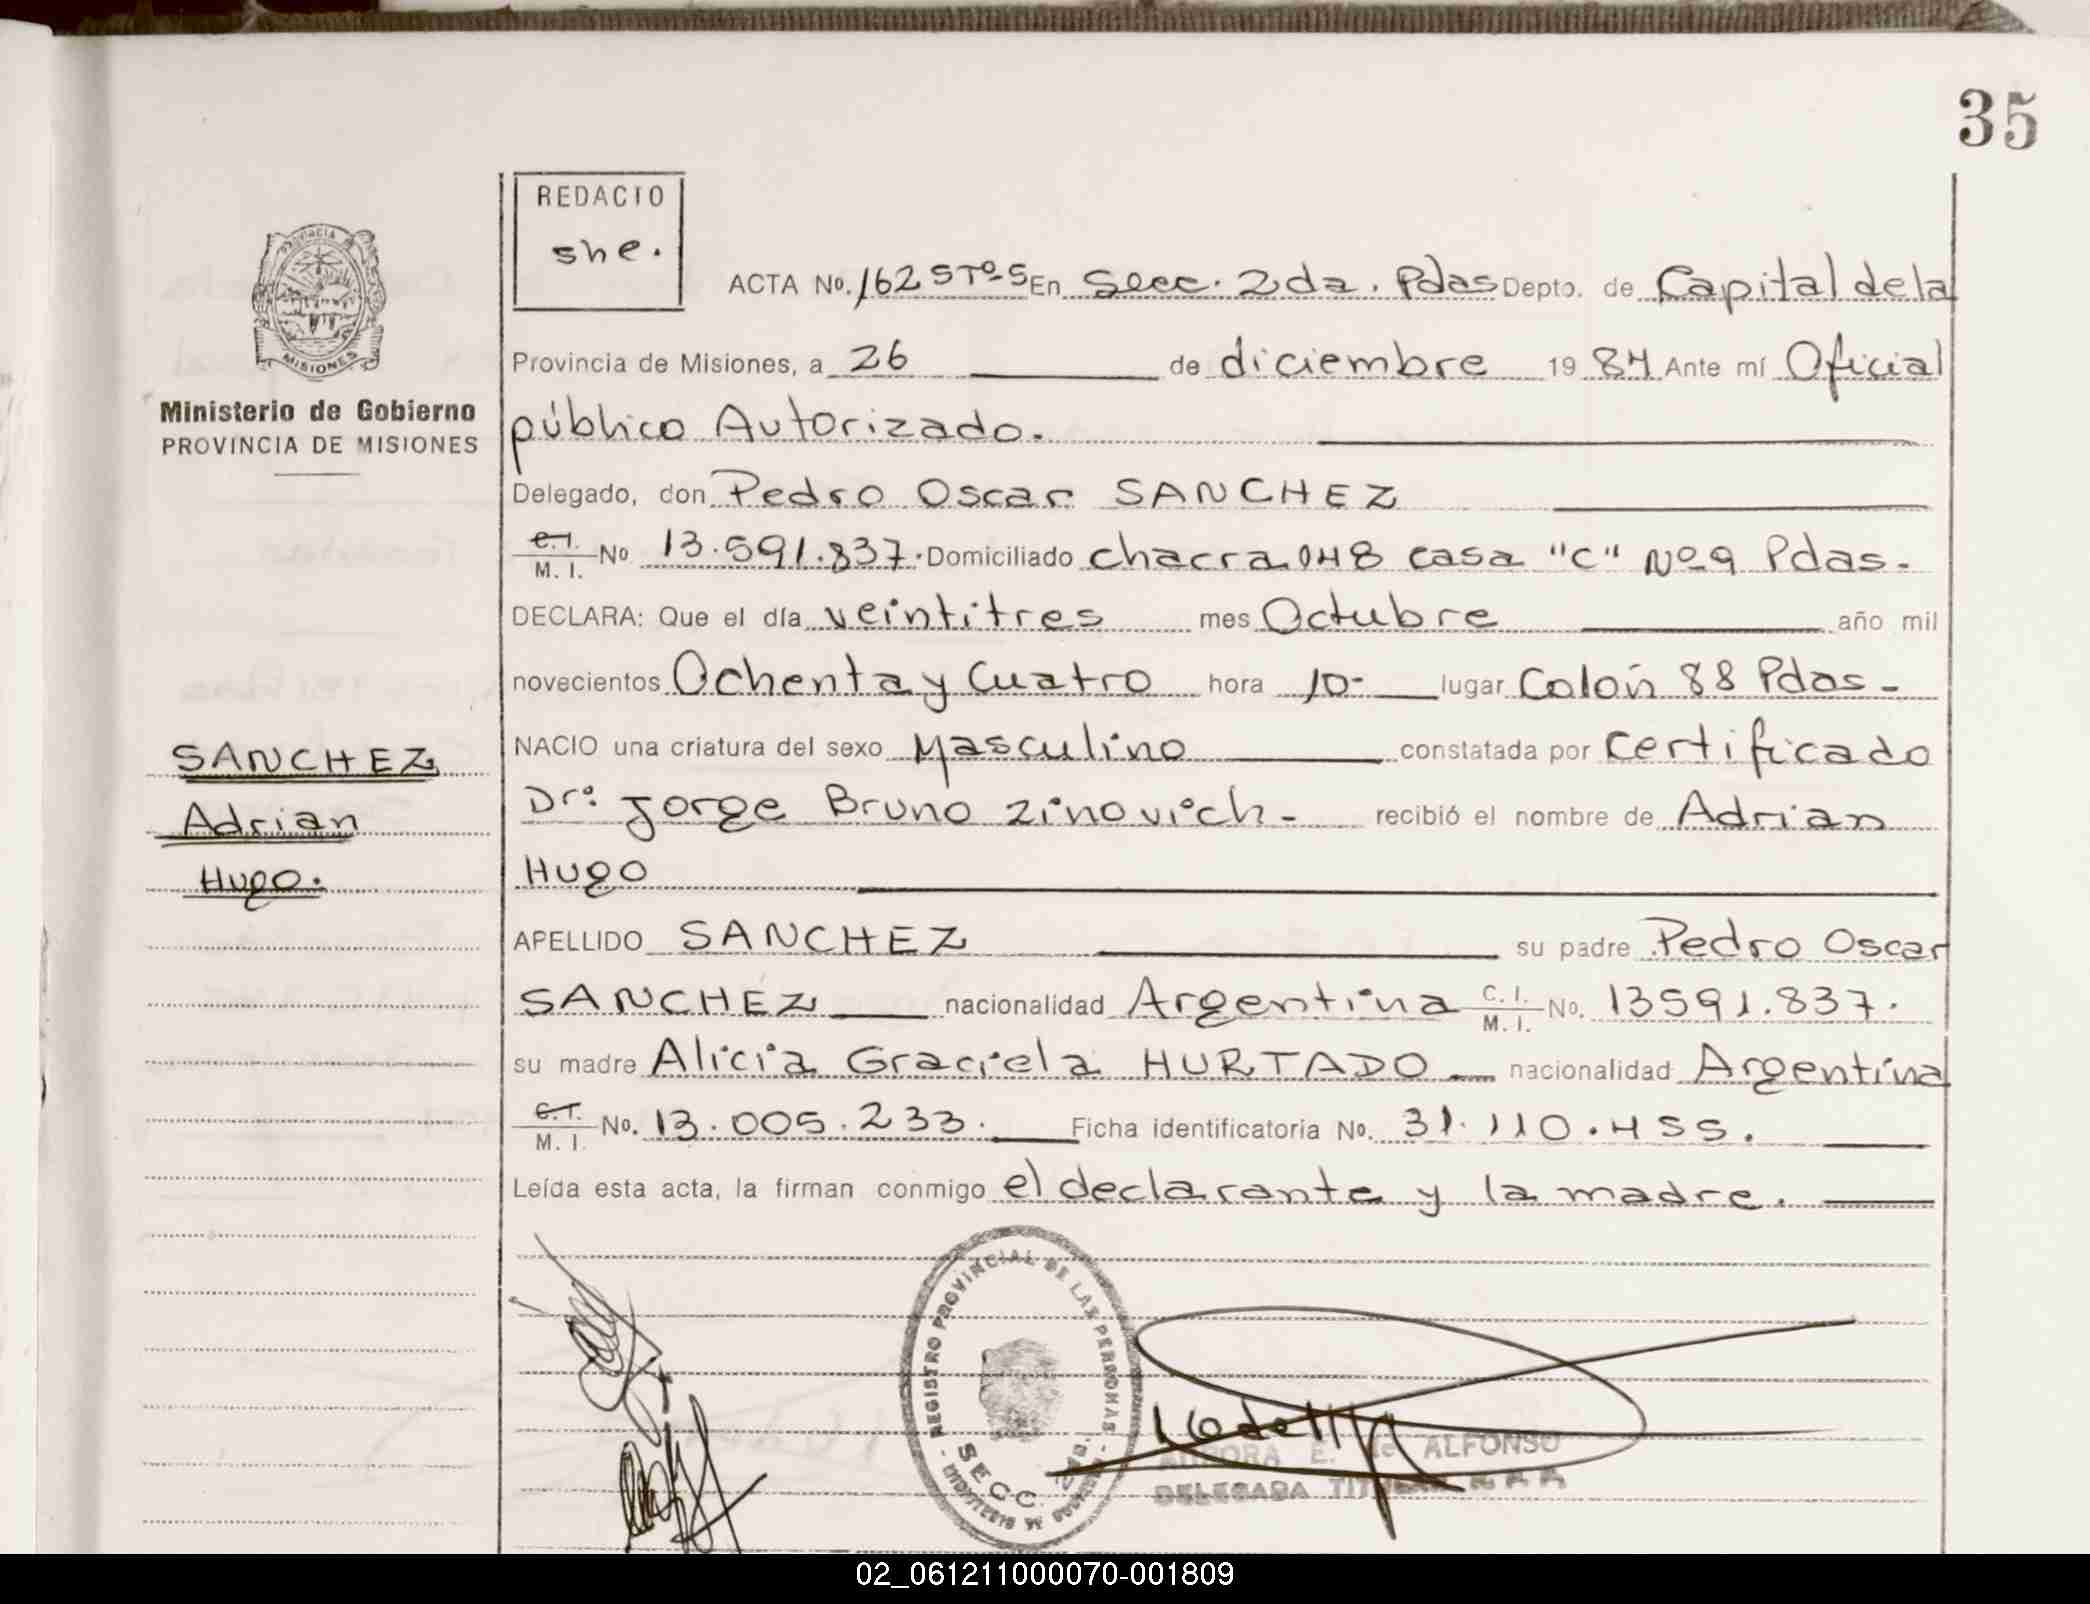 35
REDACIO
she.
ACTA No. 162 STº-5 En Secc. 2da. Pdas Depto. de Capital dela
Provincia de Misiones, a 26 de diciembre 1984 Ante mí Oficial
público Autorizado.
Delegado, don Pedro Oscar SANCHEZ
C.I. M. I. No 13.591.837. Domiciliado chacra 048 casa "C" Nº9 Pdas.
DECLARA: Que el día veintitres mes Octubre año mil
novecientos Ochenta y Cuatro hora 10- lugar Colón 88 Pdas-
NACIO una criatura del sexo Masculino constatada por Certificado
Dr: Jorge Bruno Zinovich- recibió el nombre de Adrian
Hugo
APELLIDO SANCHEZ su padre Pedro Oscar
SANCHEZ nacionalidad Argentina C. I. M. I. No. 13591.837.
su madre Alicia Graciela HURTADO nacionalidad Argentina
C.I. M. I. No. 13.005.233. Ficha identificatoria No. 31.110.455.
Leída esta acta, la firman conmigo el declarante y la madre.
PROVINCIA
MISIONES
Ministerio de Gobierno
PROVINCIA DE MISIONES
SANCHEZ
Adrian
Hugo.
REGISTRO PROVINCIAL DE LAS PERSONAS
SECC.
E. de ALFONSO
DELEGADA
02_061211000070-001809